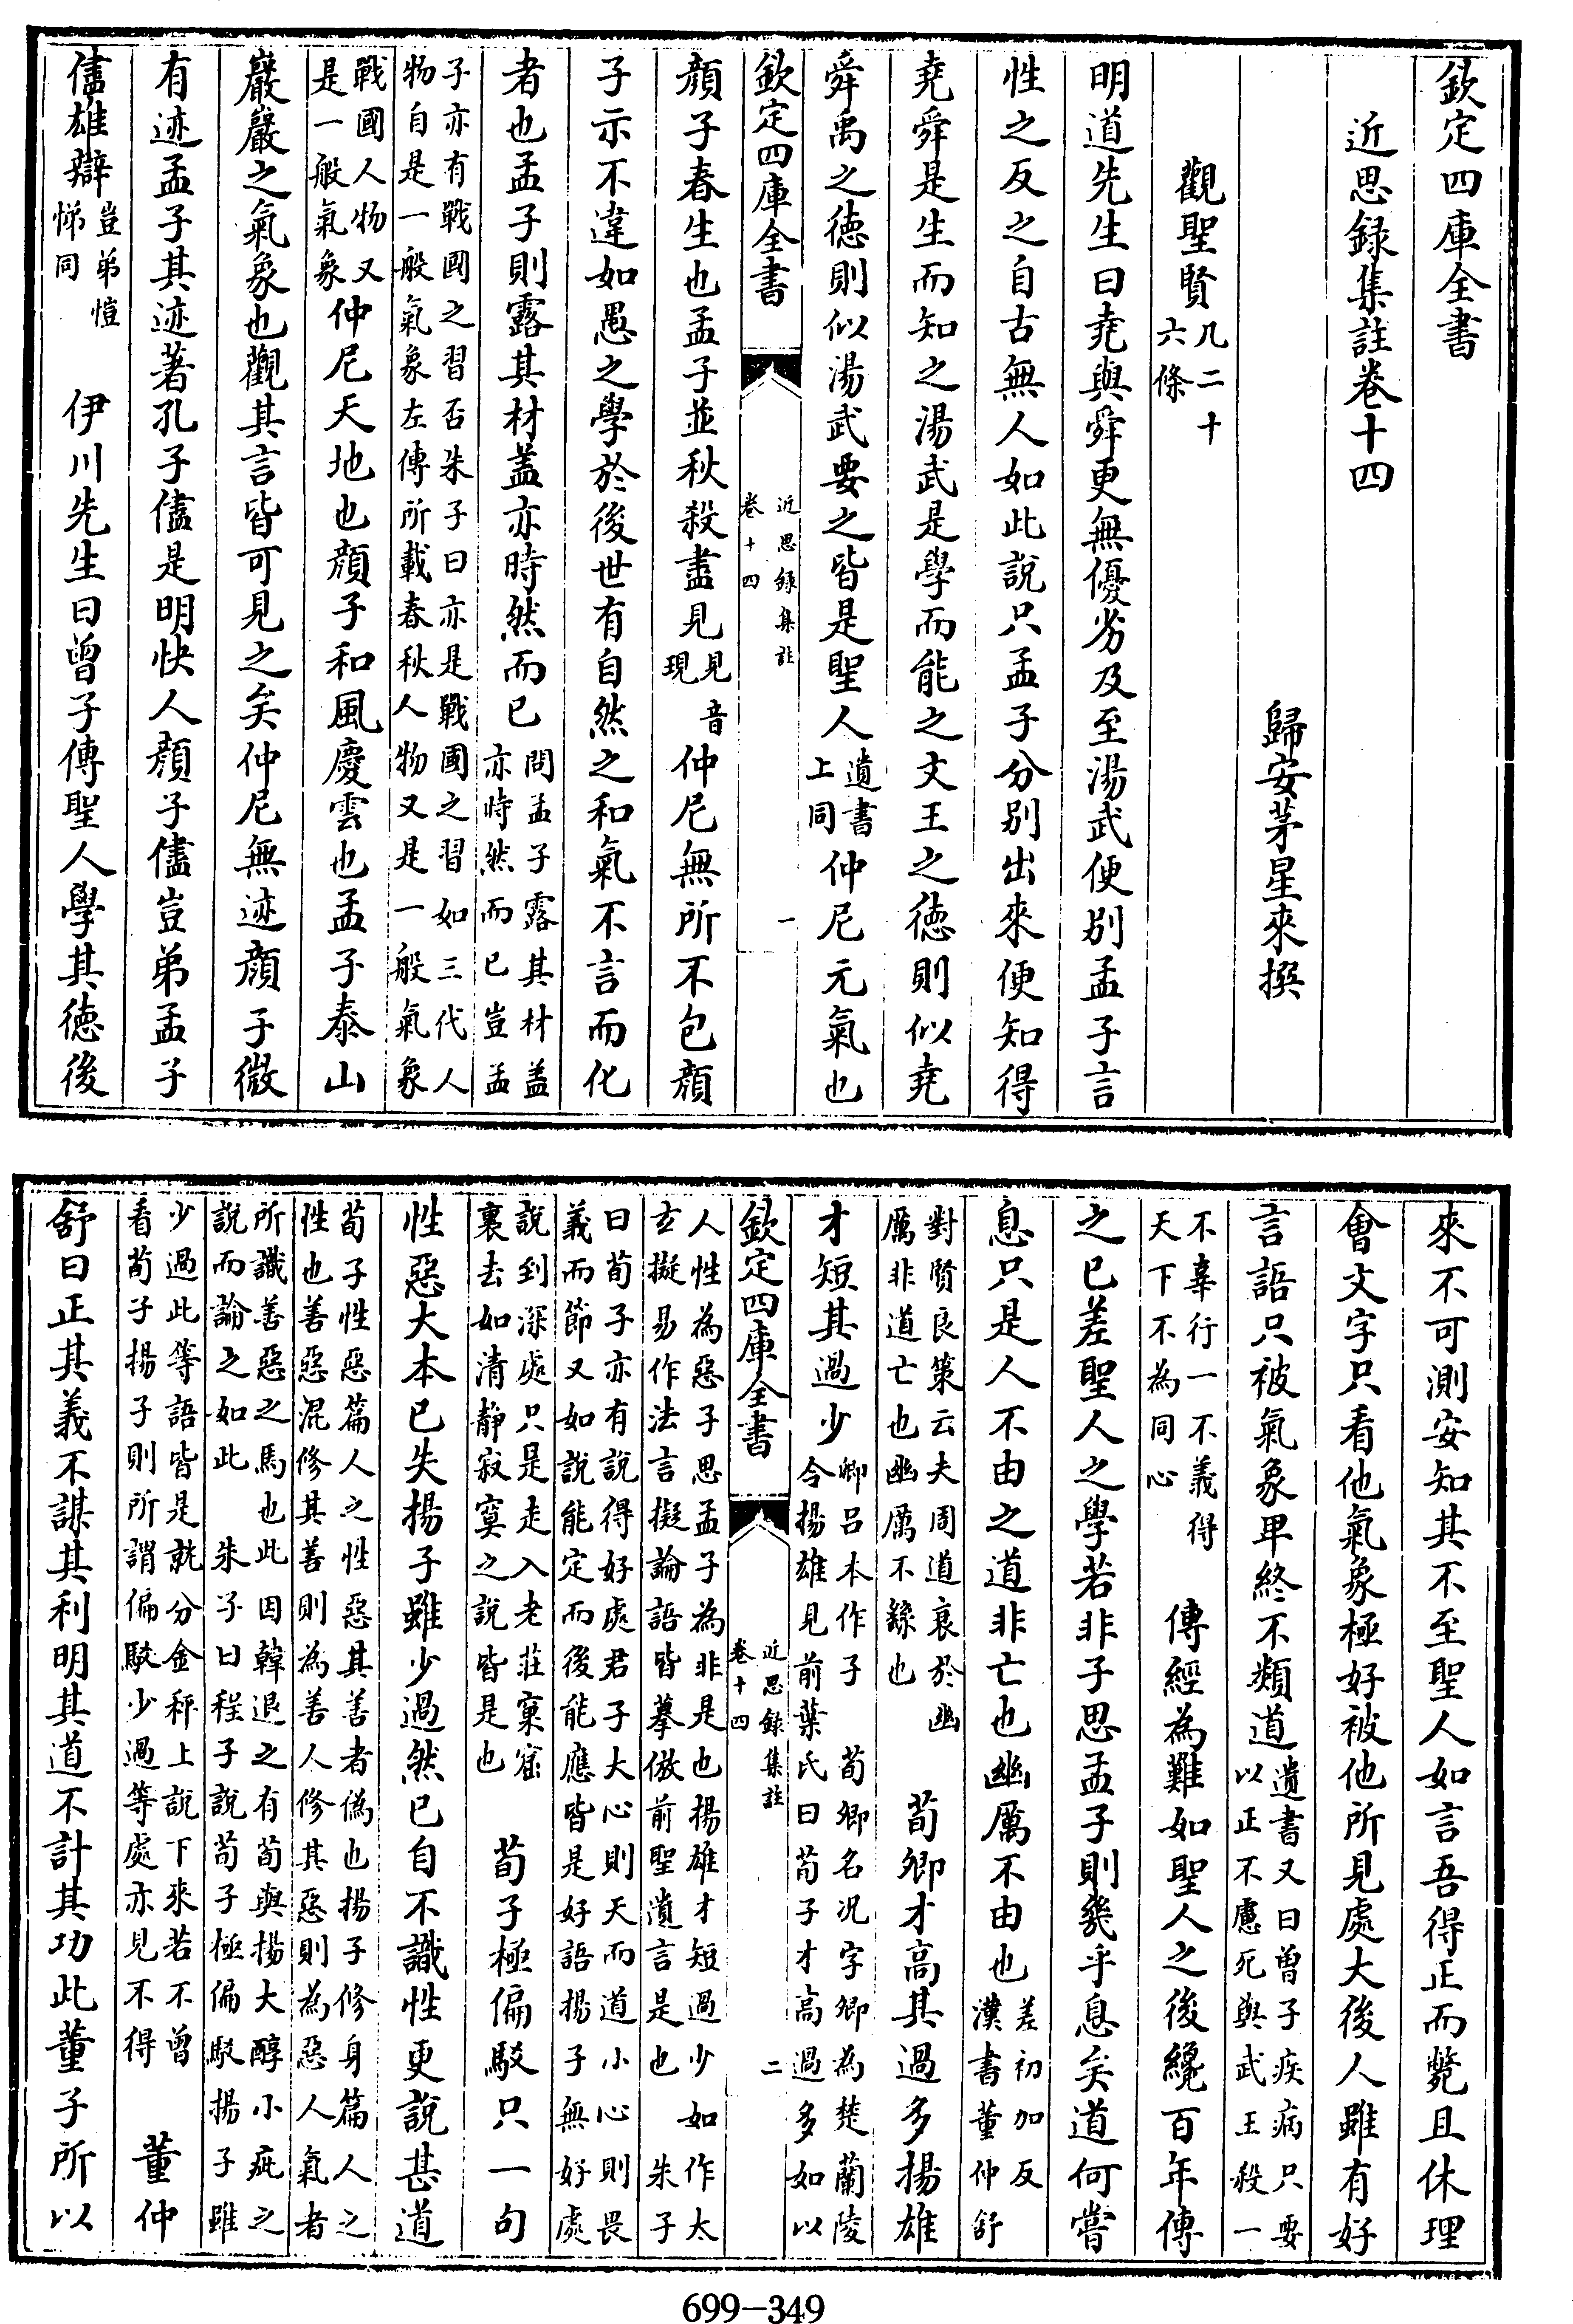 欽定四庫全書
近思録集註卷十四
歸安茅星來撰
觀聖賢凡二十六條
明道先生曰堯與舜更無優劣及至湯武便别孟子言
性之反之自古無人如此説只孟子分别出來便知得
堯舜是生而知之湯武是學而能之文王之德則似堯
舜禹之德則似湯武要之皆是聖人遺書上同仲尼元氣也
欽定四庫全書
近思録集註
卷十四
一
顔子春生也孟子並秋殺盡見見音現仲尼無所不包顔
子示不違如愚之學於後世有自然之和氣不言而化
者也孟子則露其材盖亦時然而已問孟子露其材盖亦時然而已豈孟
子亦有戰國之習否朱子曰亦是戰國之習如三代人
物自是一般氣象左傳所載春秋人物又是一般氣象
戰國人物又是一般氣象仲尼天地也顔子和風慶雲也孟子泰山
巖巖之氣象也觀其言皆可見之矣仲尼無迹顔子微
有迹孟子其迹著孔子儘是明快人顔子儘豈弟孟子
儘雄辯豈弟愷悌同 伊川先生曰曾子傳聖人學其德後
來不可測安知其不至聖人如言吾得正而斃且休理
會文字只看他氣象極好被他所見處大後人雖有好
言語只被氣象卑終不類道遺書又曰曾子疾病只要以正不慮死與武王殺一
不辜行一不義得天下不為同心 傳經為難如聖人之後纔百年傳
之已差聖人之學若非子思孟子則幾乎息矣道何嘗
息只是人不由之道非亡也幽厲不由也差初加反漢書董仲舒
對賢良策云夫周道衰於幽厲非道亡也幽厲不繇也 荀卿才高其過多揚雄
才短其過少卿吕本作子 荀卿名况字卿為楚蘭陵令揚雄見前葉氏曰荀子才高過多如以
欽定四庫全書
近思録集註
卷十四
二
人性為惡子思孟子為非是也揚雄才短過少如作太
玄擬易作法言擬論語皆摹倣前聖遺言是也 朱子
曰荀子亦有説得好處君子大心則天而道小心則畏
義而節又如説能定而後能應皆是好語揚子無好處
説到深處只是走入老莊窠窟
裏去如清静寂寞之説皆是也 荀子極偏駁只一句
性惡大本已失揚子雖少過然已自不識性更説甚道
荀子性惡篇人之性惡其善者偽也揚子修身篇人之
性也善惡混修其善則為善人修其惡則為惡人氣者
所議善惡之馬也此因韓退之有荀與揚大醇小疵之
説而論之如此 朱子曰程子説荀子極偏駁揚子雖
少過此等語皆是就分金秤上説下來若不曾
看荀子揚子則所謂偏駁少過等處亦見不得 董仲
舒曰正其義不謀其利明其道不計其功此董子所以
699-349